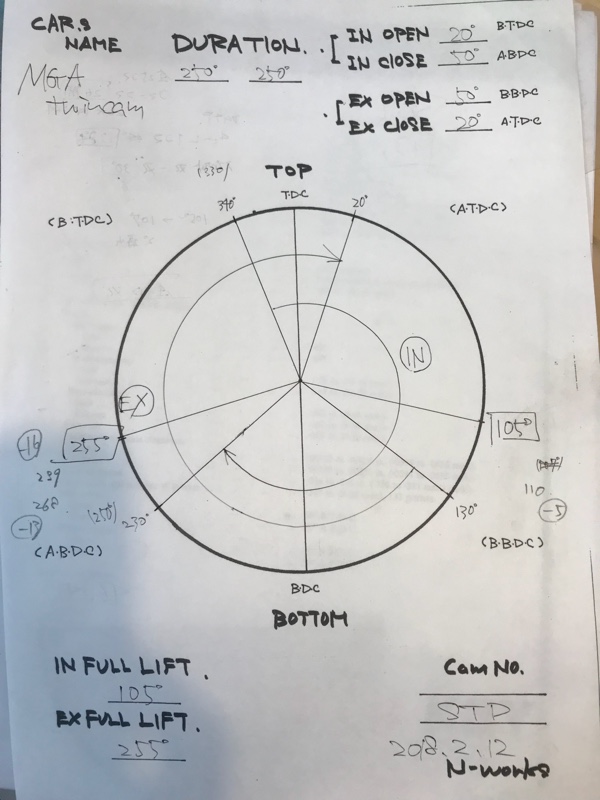 CAR.S
NAME
MGA
twincam
DURATION.
250° 250°
IN OPEN 20° B.T.D.C
IN CLOSE 50° A.B.D.C
EX OPEN 50° B.B.D.C
EX CLOSE 20° A.T.D.C
(330)
TOP
T.D.C
340°
20°
(B.T.D.C)
(A.T.D.C)
IN
EX
-16
255°
105°
239
268
110
(250)
230°
130°
-13
-5
(A.B.D.C)
(B.B.D.C)
B.D.C
BOTTOM
IN FULL LIFT.
105°
EX FULL LIFT.
255°
Cam No.
STD
2018.2.12
N-works